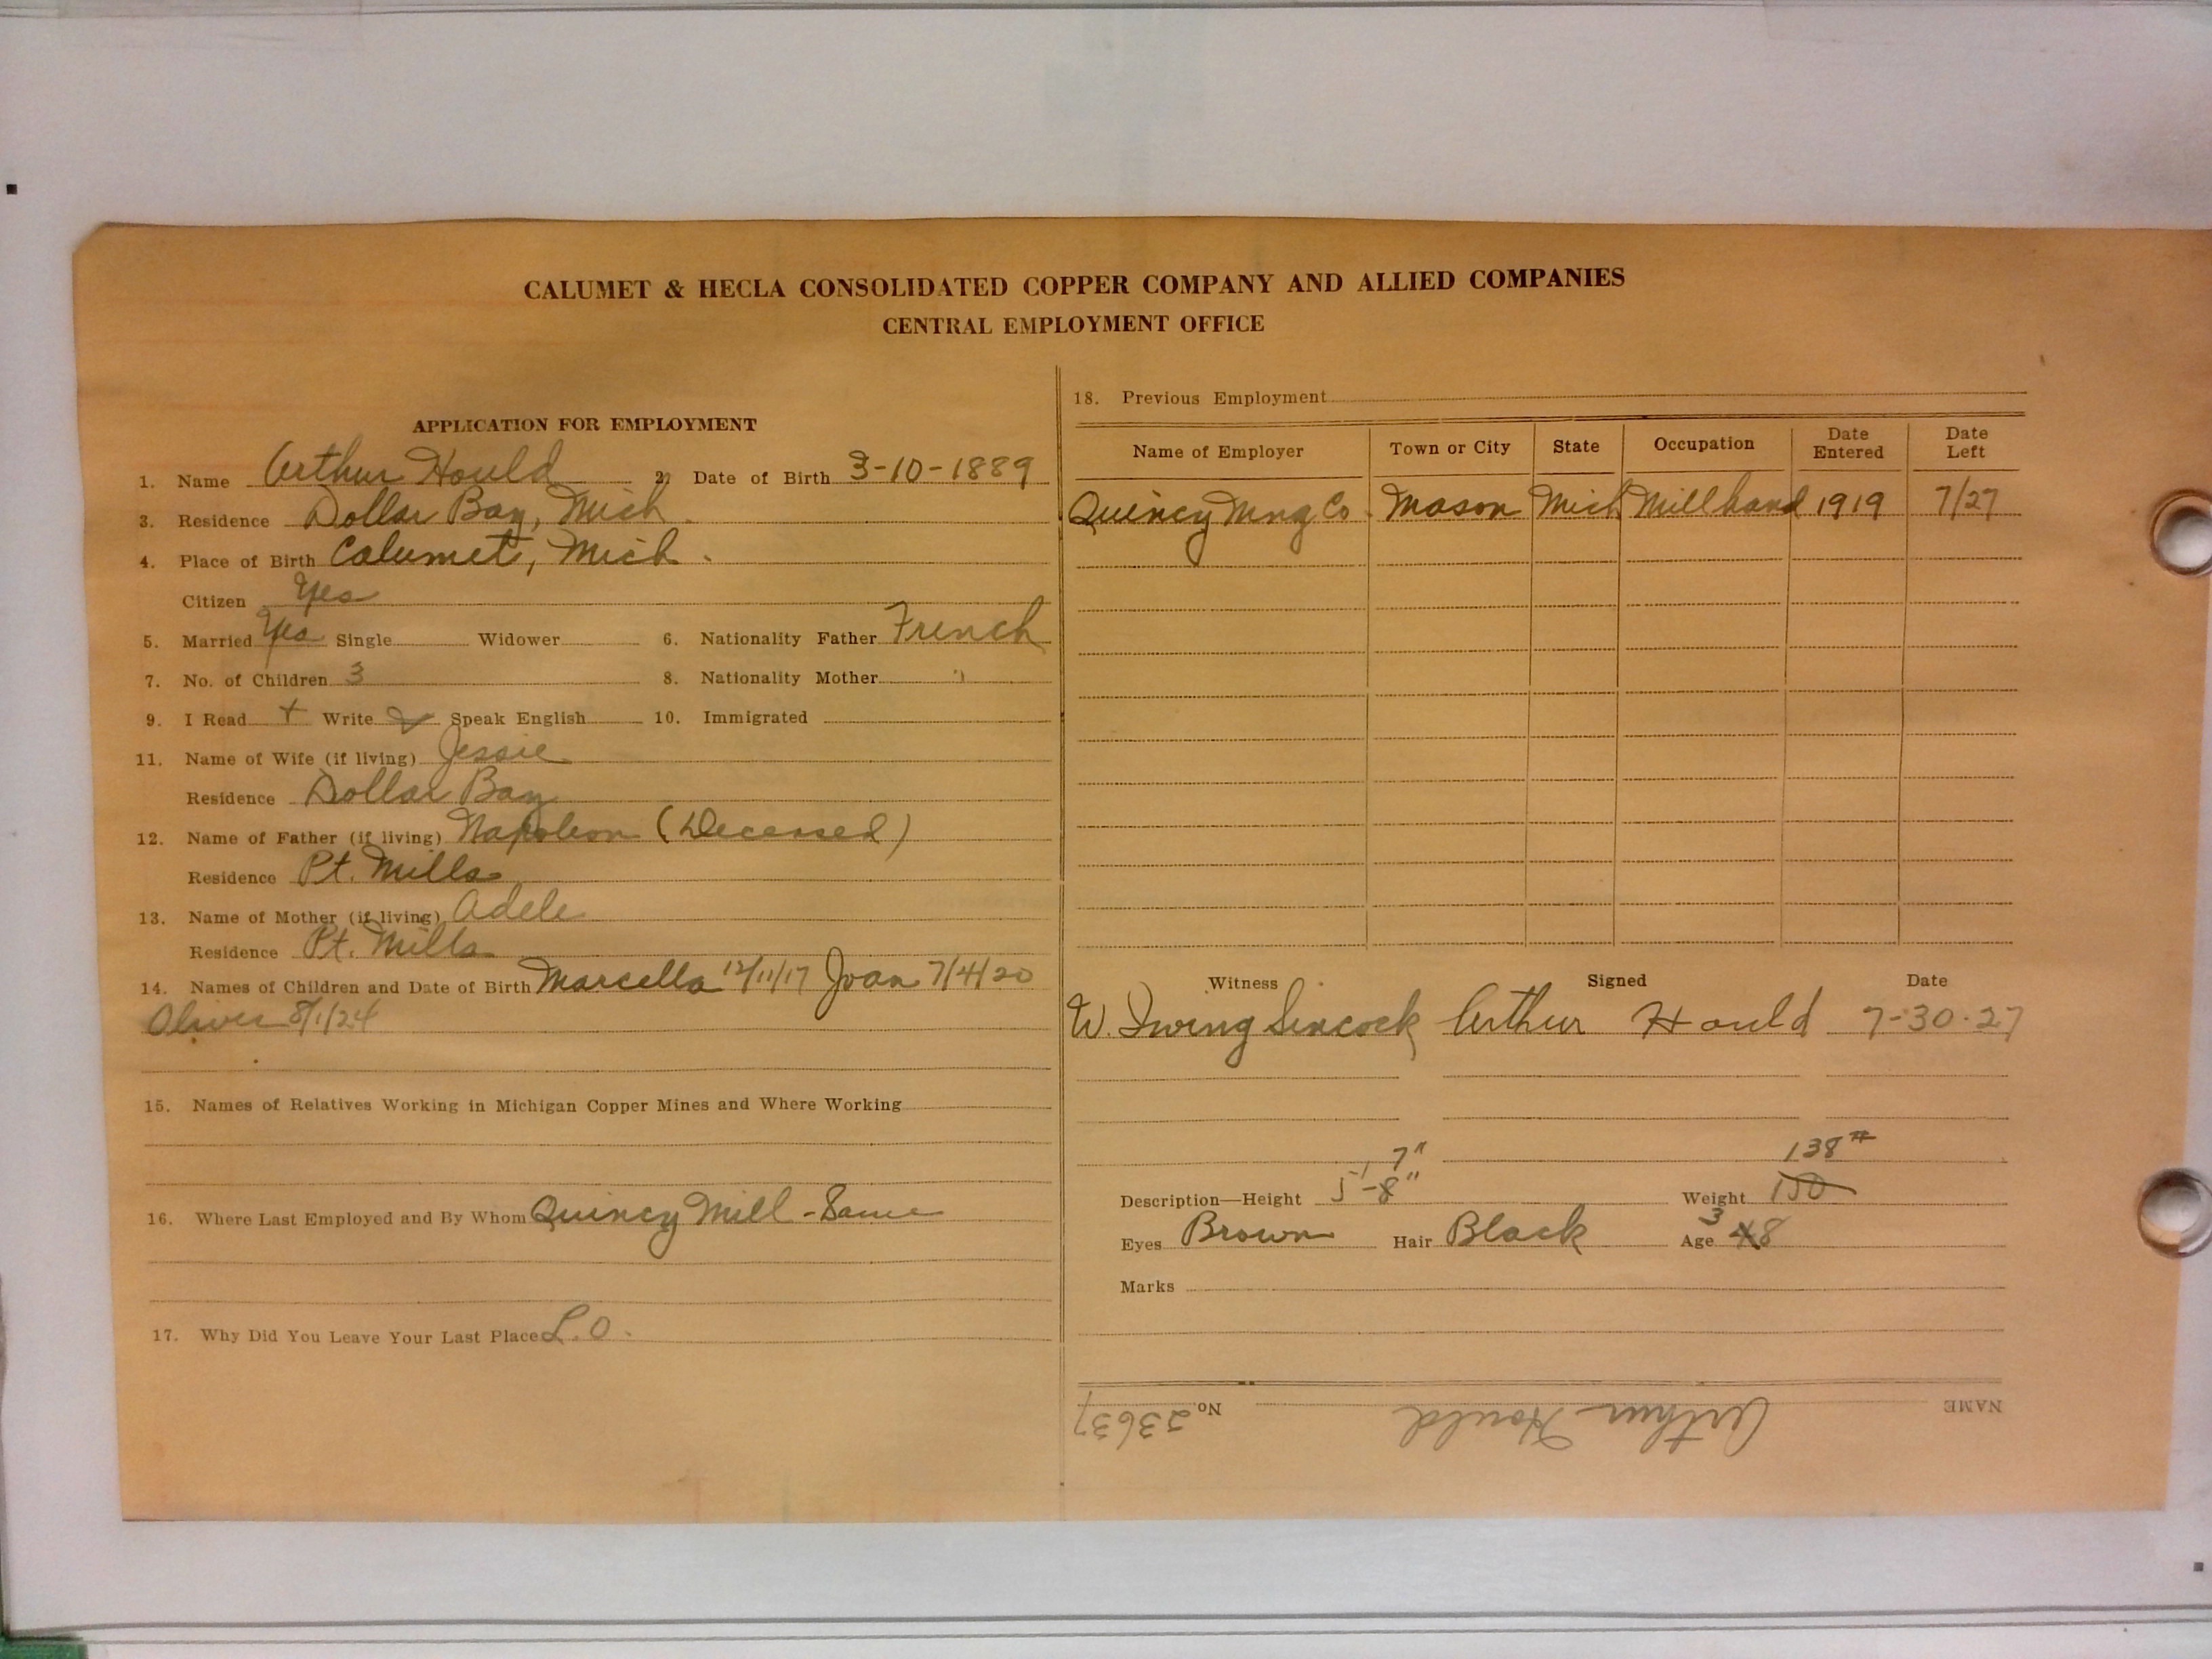 CALUMET & HECLA CONSOLIDATED COPPER COMPANY AND ALLIED COMPANIES
CENTRAL EMPLOYMENT OFFICE
APPLICATION FOR EMPLOYMENT
1. Name Arthur Hould 2. Date of Birth 3-10-1889
3. Residence Dollar Bay, Mich.
4. Place of Birth Calumet, Mich.
Citizen Yes
5. Married Yes Single Widower 6. Nationality Father French
7. No. of Children 3 8. Nationality Mother "
9. I Read Write Speak English 10. Immigrated
11. Name of Wife (if living) Jessie
Residence Dollar Bay
12. Name of Father (if living) Napoleon (Deceased)
Residence Pt. Mills
13. Name of Mother (if living) Adele
Residence Pt. Mills
14. Names of Children and Date of Birth Marcella 12/11/17 Joan 7/4/20
Oliver 8/1/24
15. Names of Relatives Working in Michigan Copper Mines and Where Working
16. Where Last Employed and By Whom Quincy Mill - Same
17. Why Did You Leave Your Last Place L.O.
18. Previous Employment
Name of Employer Town or City State Occupation Date Entered Date Left
Quincy Mng Co. Mason Mich Millhand 1919 7/27
Witness Signed Date
W. Irving Sincock Arthur Hould 7-30-27
7" 138#
Description—Height 5'-8" Weight 150
3
Eyes Brown Hair Black Age 48
Marks
NAME Arthur Hould No. 23637